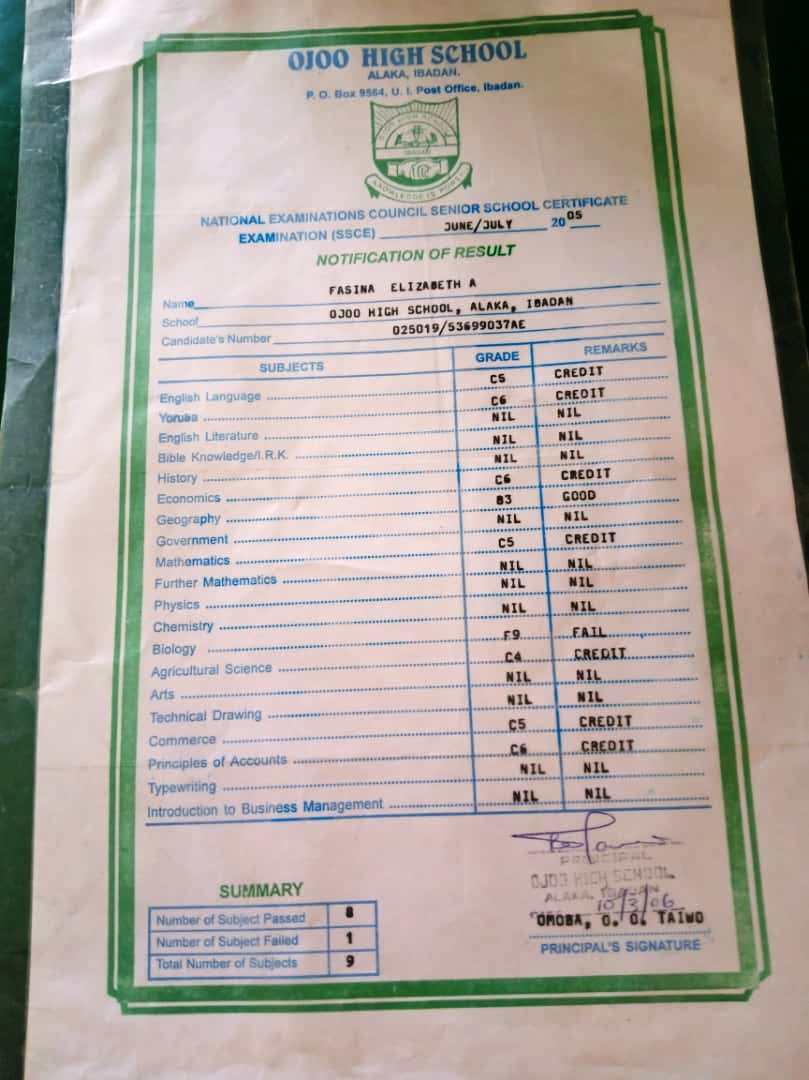 OJOO HIGH SCHOOL
ALAKA, IBADAN.
P. O. Box 9564, U. I. Post Office, Ibadan.
OJOO HIGH SCHOOL
IBADAN
KNOWLEDGE IS POWER
NATIONAL EXAMINATIONS COUNCIL SENIOR SCHOOL CERTIFICATE
EXAMINATION (SSCE) JUNE/JULY 2005
NOTIFICATION OF RESULT
Name FASINA ELIZABETH A
School OJOO HIGH SCHOOL, ALAKA, IBADAN
Candidate's Number 025019/53699037AE
SUBJECTS GRADE REMARKS
English Language C5 CREDIT
Yoruba C6 CREDIT
English Literature NIL NIL
Bible Knowledge/I.R.K. NIL NIL
History NIL NIL
Economics C6 CREDIT
Geography B3 GOOD
Government NIL NIL
Mathematics C5 CREDIT
Further Mathematics NIL NIL
Physics NIL NIL
Chemistry NIL NIL
Biology F9 FAIL
Agricultural Science C4 CREDIT
Arts NIL NIL
Technical Drawing NIL NIL
Commerce C5 CREDIT
Principles of Accounts C6 CREDIT
Typewriting NIL NIL
Introduction to Business Management NIL NIL
PRINCIPAL
OJOO HIGH SCHOOL
ALAKA, IBADAN
10/3/06
OMOBA, O. O. TAIWO
PRINCIPAL'S SIGNATURE
SUMMARY
Number of Subject Passed 8
Number of Subject Failed 1
Total Number of Subjects 9